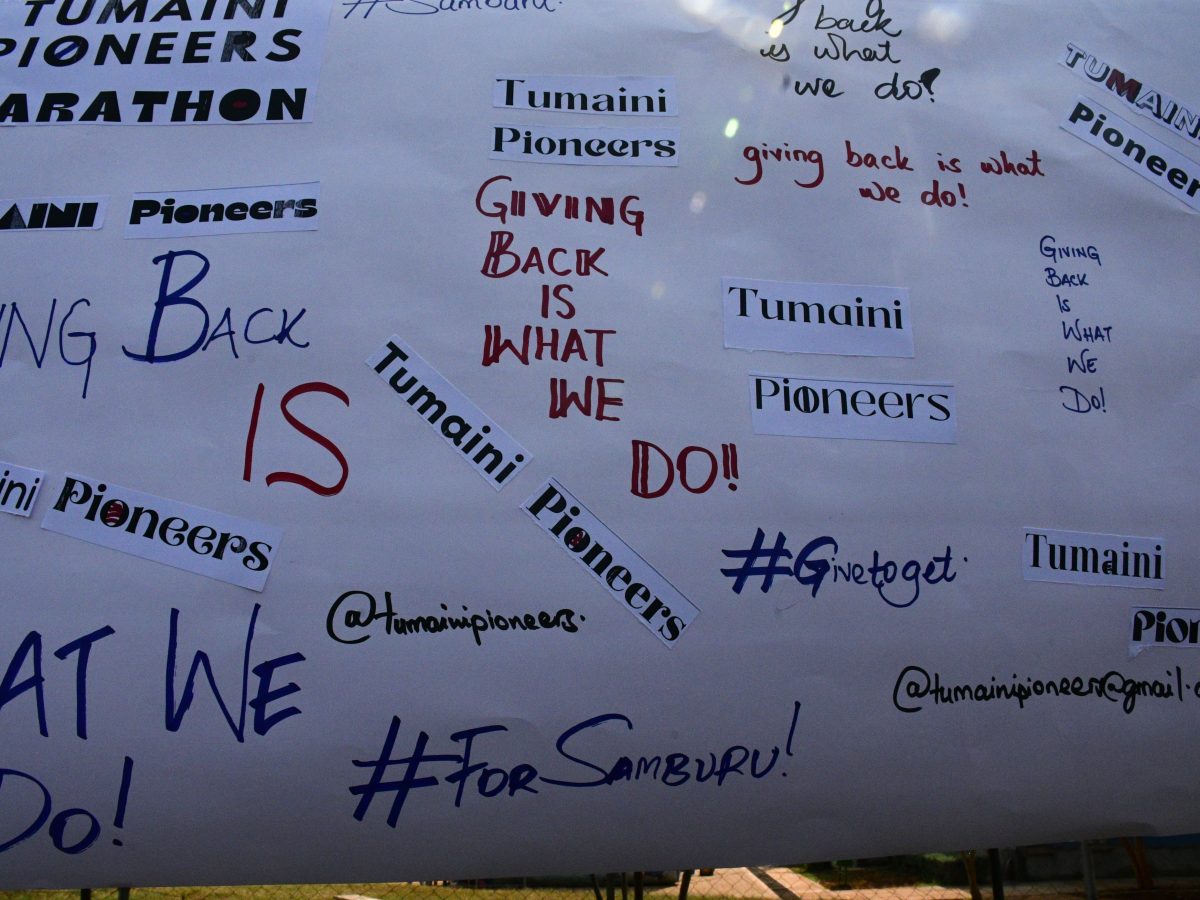 TUMAINI
PIONEERS
ARATHON
#Samburu.
back
is what
we do!
Tumaini
Pioneers
TUMAIN
Pioneer
giving back is what
we do!
AINI Pioneers
GIVING
BACK
IS
WHAT
WE
DO!!
NG BACK
IS
AT WE
DO!
Tumaini
Pioneers
GIVING
BACK
IS
WHAT
WE
DO!
Tumaini
Pioneers
ini Pioneers
#Givetoget.
Tumaini
Pion
@tumainipioneers.
@tumainipioneers@gmail.
#FOR SAMBURU!